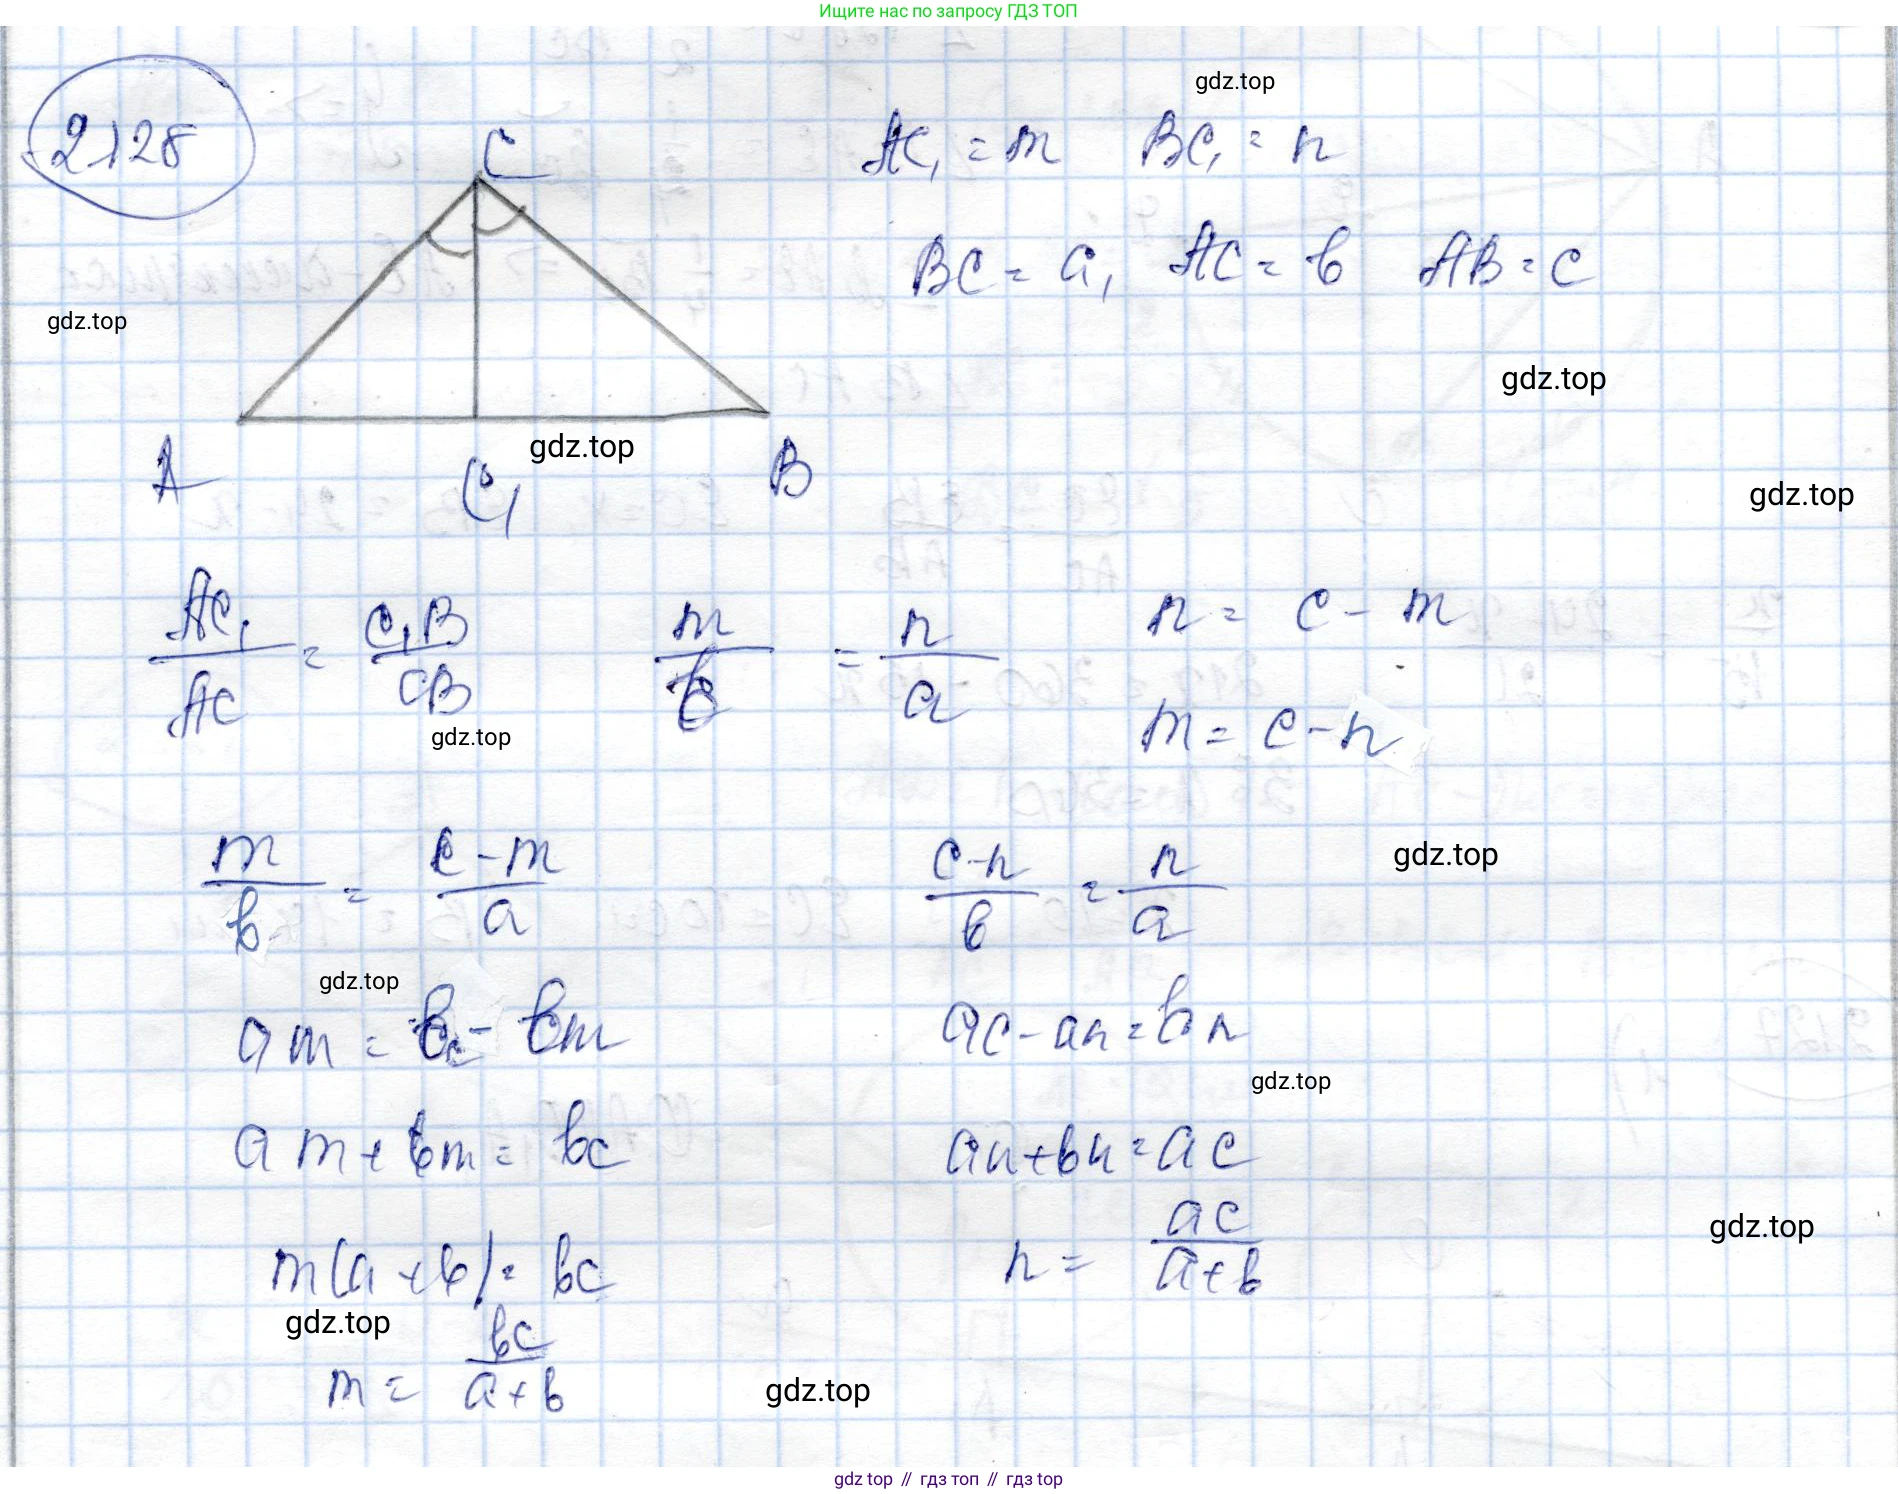 Ищите нас по запросу ГДЗ ТОП
2128
gdz.top
C
AC₁ = m   BC₁ = n
BC = a,   AC = b   AB = c
gdz.top
gdz.top
gdz.top
A   C₁   B
gdz.top
AC₁/AC = C₁B/CB   m/b = n/a   n = c - m
gdz.top
m = c - n
m/b = c - m/a   c - n/b = n/a
gdz.top
gdz.top
am = bc - bm   ac - an = bn
gdz.top
am + bm = bc   an + bn = ac
gdz.top
m(a + b) = bc   n = ac/a + b
gdz.top
m = bc/a + b
gdz.top
gdz top // гдз топ // гдз top